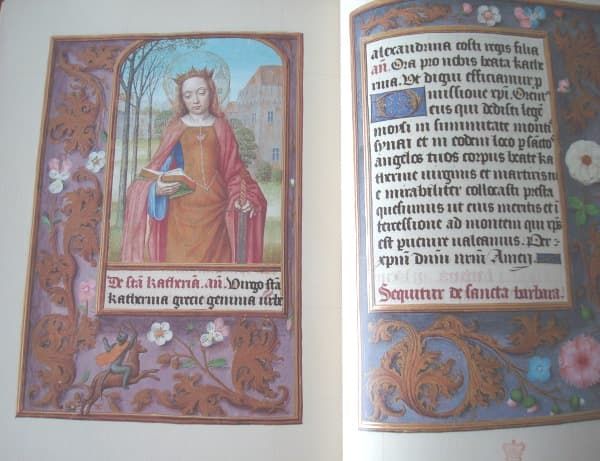 De sta katherīa. an̄. Virgo sta
katherina grecie gemma urbe
alexandrina costi regis filia
an̄. Ora pro nobis beata kathe
rina. Ut digni efficiamur p
missione xp̄i. Orem'
Deus qui dedisti legē
moysi in summitate monti
synai et in eodem loco p sāctos
angelos tuos corpus beate ka
therine virginis et martiris tue
mirabiliter collocasti presta
quesumus ut eius meritis et ī
tercessione ad montem qui xp̄s
est puenire valeamus. Per
xpūm dn̄m nr̄m Amen
Sequitur de sancta barbara.